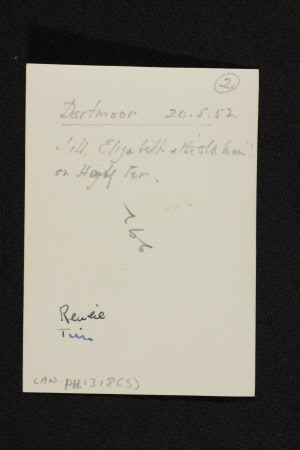 ②
Dartmoor 20.5.52.
Jill, Elizabeth & the 'old man'!
on Haytor Tor.
Renée
Tim
LAN PH.1318(5)